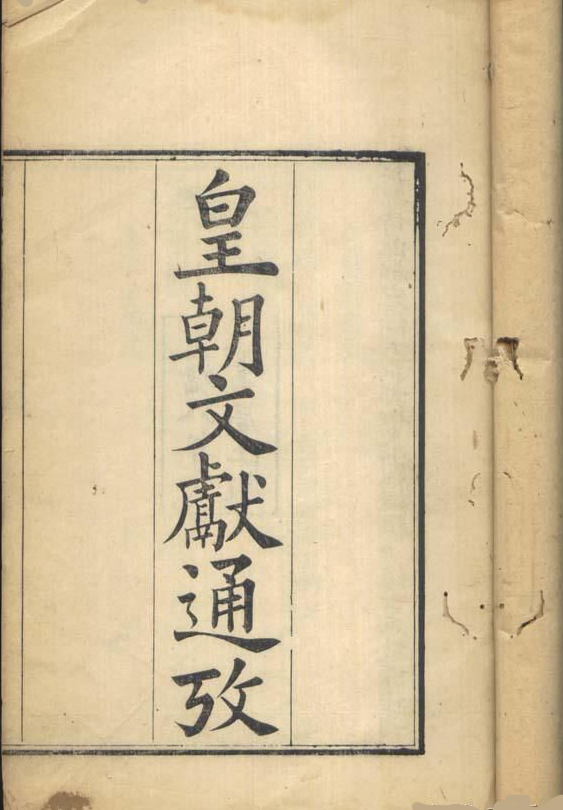 皇朝文獻通攷